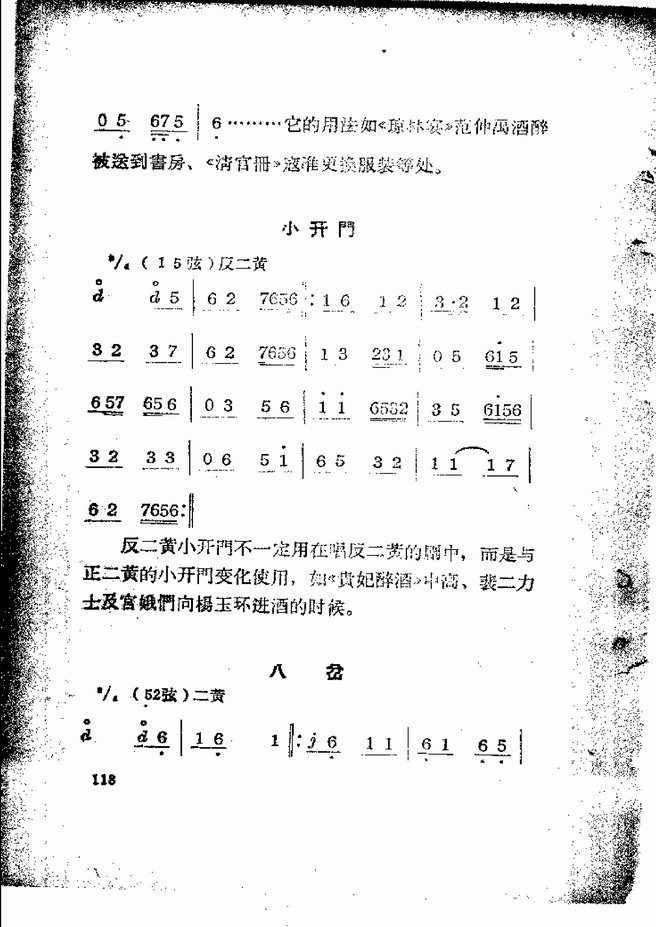 0 5 6 7 5 | 6 ………它的用法如《琼林宴》范仲禹酒醉
被送到書房、《清官冊》寇准更換服装等处。
小 开 門
²/₄ ( 1 5 弦 ) 反二黄
d d 5 | 6 2 7656 : 1 6 1 2 | 3·2 1 2 |
3 2 3 7 | 6 2 7656 | 1 3 231 | 0 5 615 |
657 656 | 0 3 5 6 | 1 1 6532 | 3 5 6156 |
3 2 3 3 | 0 6 5 1 | 6 5 3 2 | 1 1 1 7 |
6 2 7656 :‖
反二黄小开門不一定用在唱反二黄的剧中，而是与
正二黄的小开門变化使用，如《貴妃醉酒》中高、裴二力
士及宮娥們向楊玉环进酒的时候。
八 岔
²/₄ ( 52弦 ) 二黄
d d 6 | 1 6 1 ‖: j 6 1 1 | 6 1 6 5 |
118